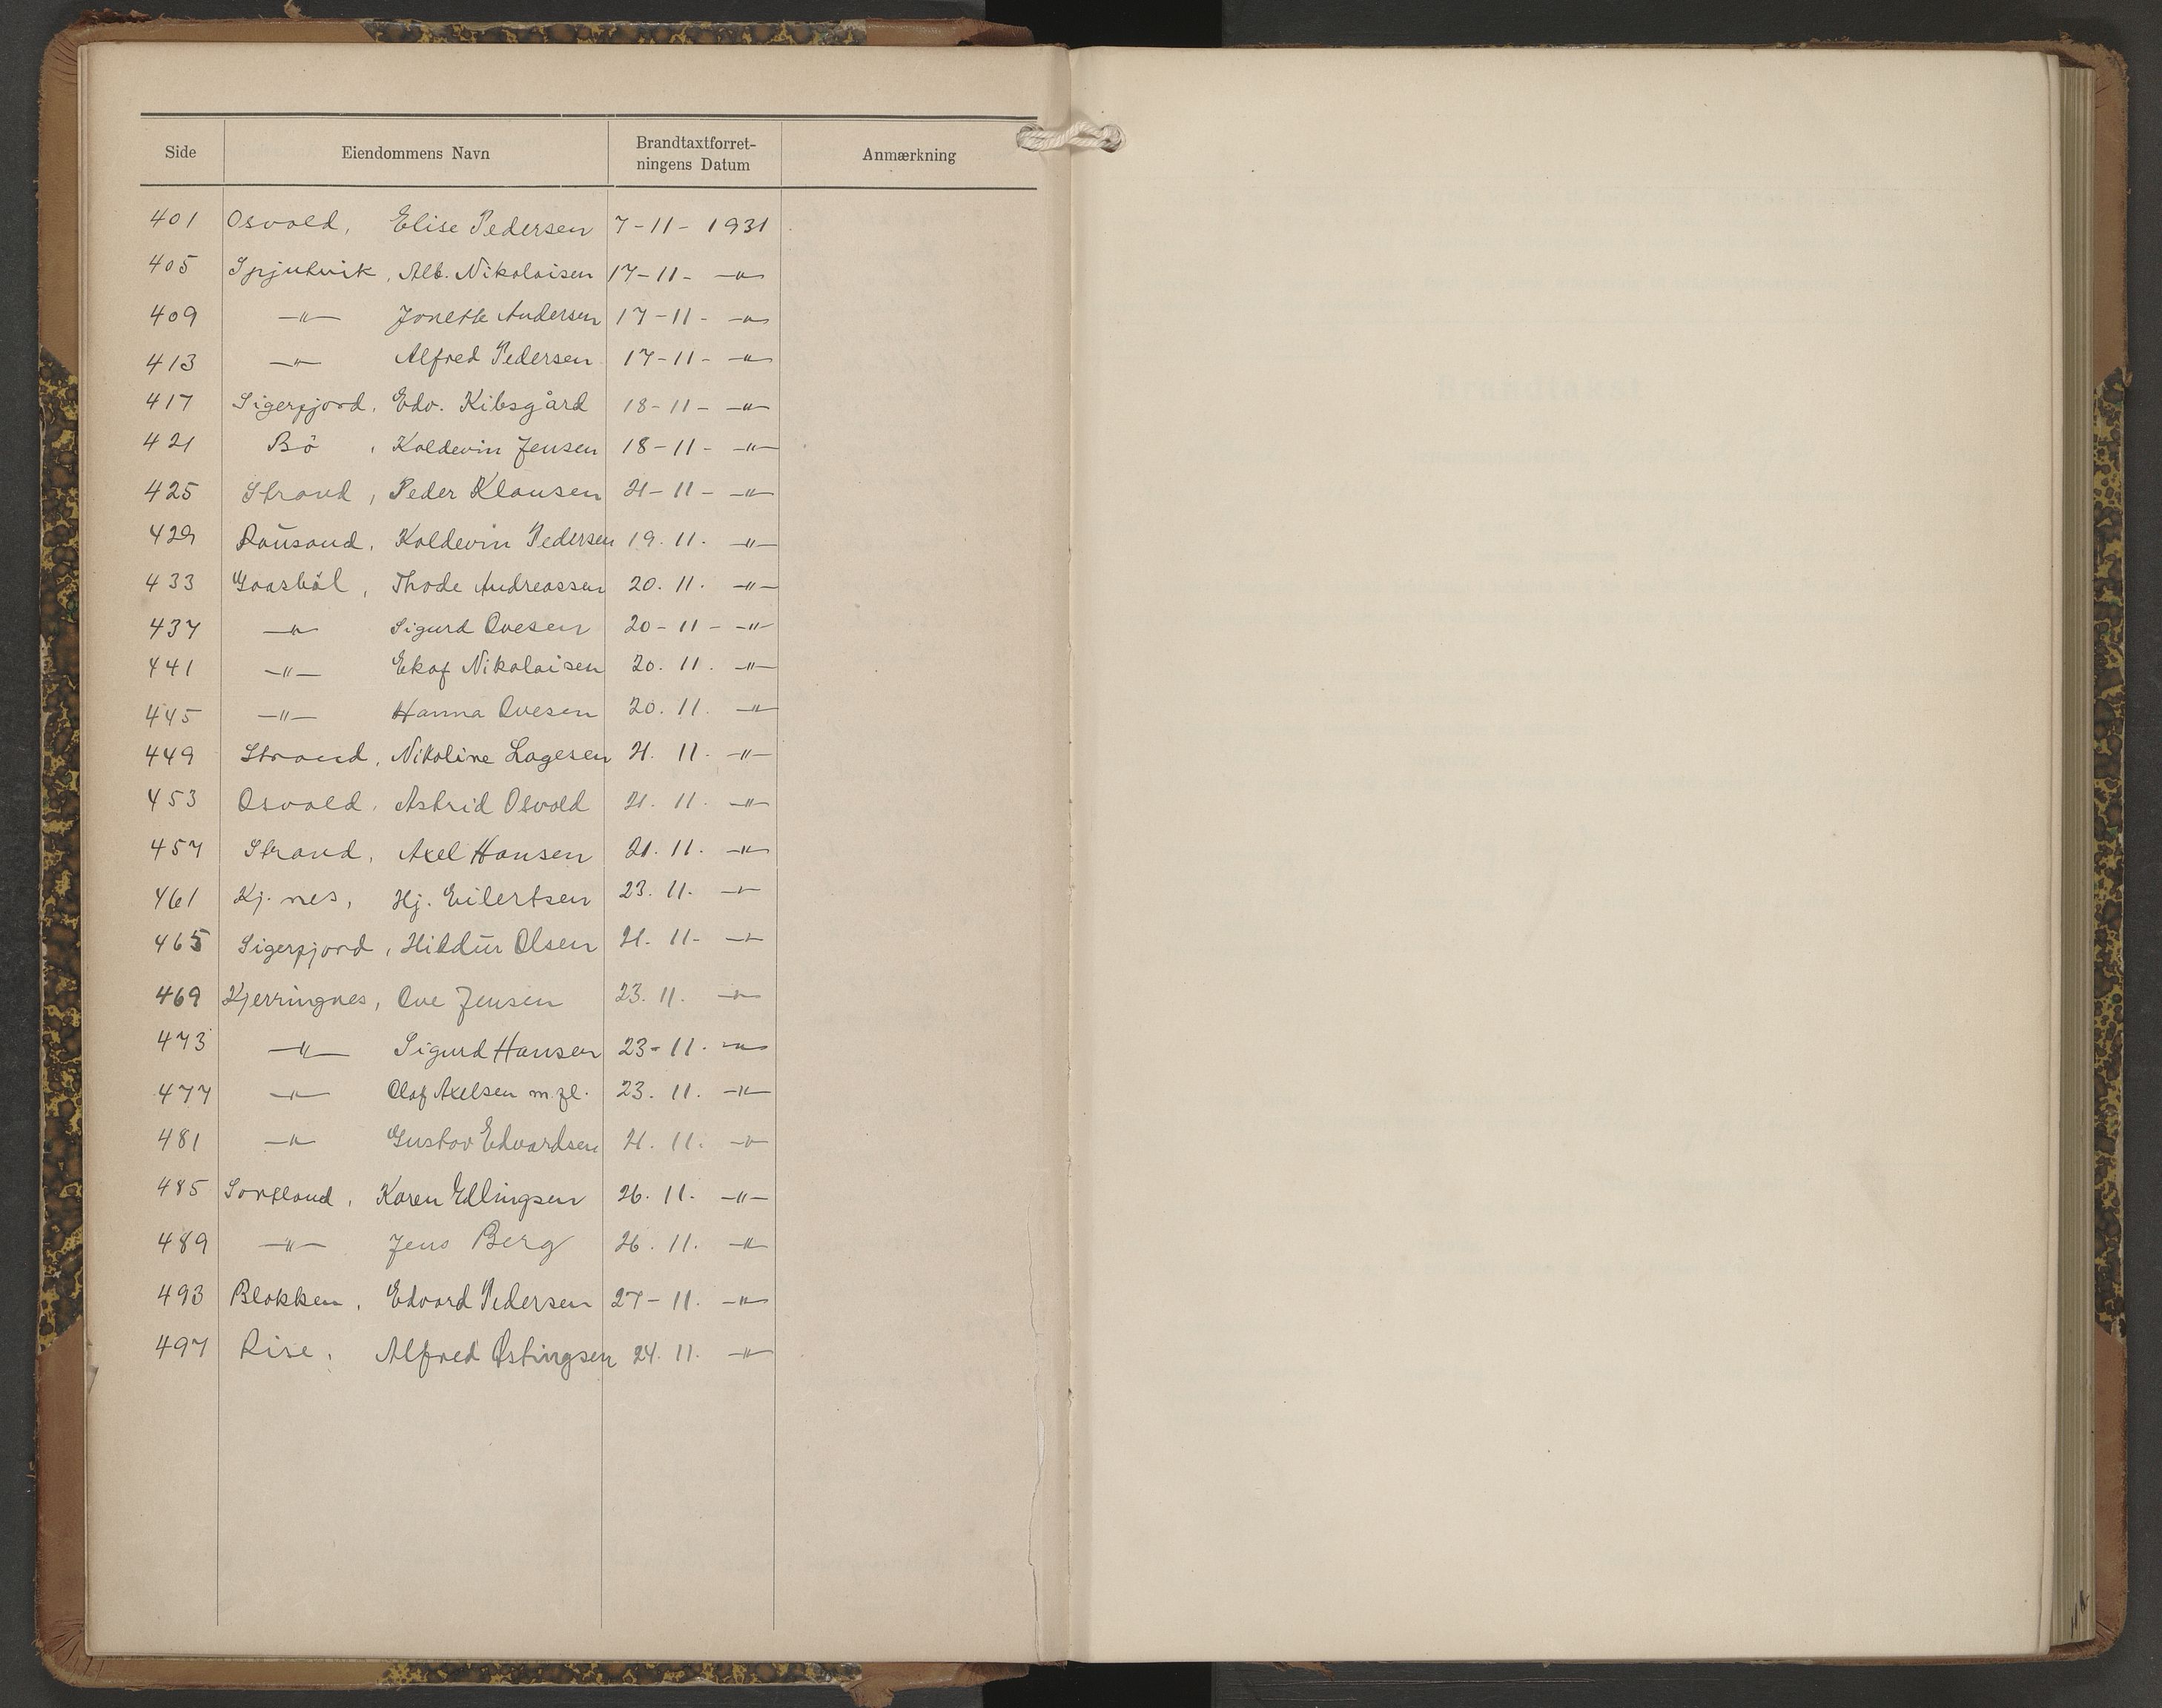 Side Eiendommens Navn Brandtaxtforret-ningens Datum Anmærkning
401 Osvold, Elise Pedersen 7-11-1931
405 Spjutvik, Alb. Nikolaisen 17-11- —"—
409 —"— Jonette Andersen 17-11- —"—
413 —"— Alfred Pedersen 17-11- —"—
417 Sigerfjord, Edv. Kibsgård 18-11- —"—
421 Bö, Koldevin Jensen 18-11- —"—
425 Strand, Peder Klausen 21-11- —"—
429 Rausand, Koldevin Pedersen 19.11. —"—
433 Gaasböl, Thode Andreassen 20.11. —"—
437 —"— Sigurd Ovesen 20-11- —"—
441 —"— Ekof Nikolaisen 20.11. —"—
445 —"— Hanna Ovesen 20.11. —"—
449 Strand, Nikoline Lagesen 21. 11. —"—
453 Osvold, Astrid Osvold 21. 11. —"—
457 Strand, Axel Hansen 21. 11. —"—
461 Kj.nes, Hj. Eilertsen 23. 11. —"—
465 Sigerfjord, Hildur Olsen 21. 11- —"—
469 Kjerringnes, Ove Jensen 23. 11. —"—
473 —"— Sigurd Hansen 23-11. —"—
477 —"— Olaf Axelsen m.fl. 23. 11. —"—
481 —"— Gustav Edvardsen 21. 11. —"—
485 Sortland, Karen Ellingsen 26. 11. —"—
489 —"— Jens Berg 26. 11. —"—
493 Blokken, Edvard Pedersen 27-11. —"—
497 Rise, Alfred Østingsen 24. 11. —"—